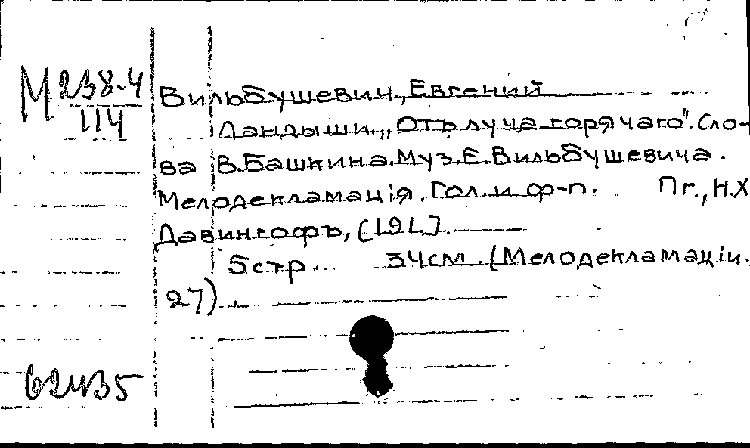 М 238-4
114
Вильбушевич, Евгений
Ландыши. „Отъ луча горячаго". Сло-
ва В. Башкина. Муз. Е. Вильбушевича.
Мелодекламація. Гол. и ф-п. Пг., Н.Х.
Давингофъ, [191.]
5 стр. 34 см. (Мелодекламаціи.
27).
62435